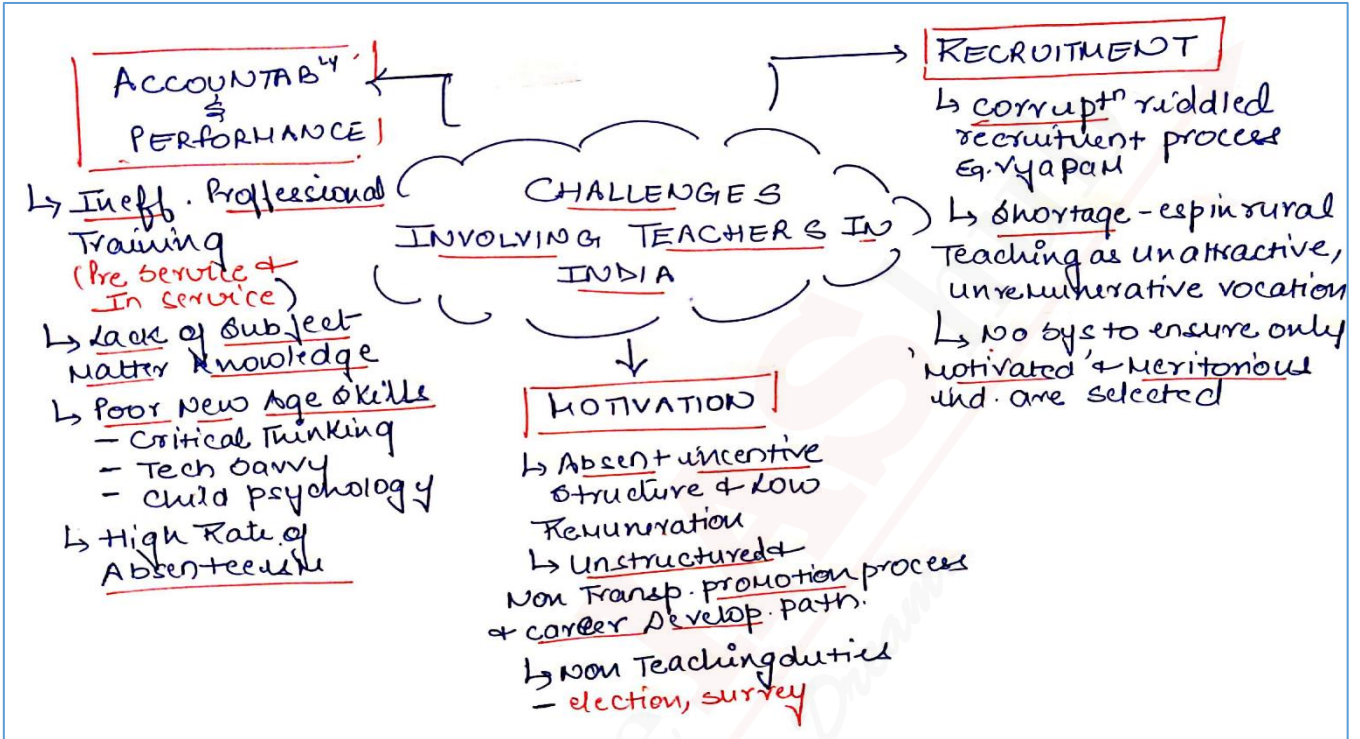 CHALLENGES
INVOLVING TEACHERS IN
INDIA
ACCOUNTABLY
&
PERFORMANCE
↳ Ineff. Proffessional
Training
(Pre service &
In service)
↳ Lack of Subject
Matter Knowledge
↳ Poor New Age Skills
– Critical Thinking
– Tech Savvy
– Child psychology
↳ High Rate of
Absenteeism
MOTIVATION
↳ Absent incentive
Structure & Low
Remuneration
↳ Unstructured &
Non Transp. promotion process
& career Develop. path.
↳ Non Teaching duties
– election, survey
RECRUITMENT
↳ corruptn riddled
recruitment process
Eg. Vyapam
↳ Shortage - esp in rural
Teaching as unattractive,
unremunerative vocation
↳ No sys to ensure only
'Motivated' & Meritorious
ind. are selected
Dream